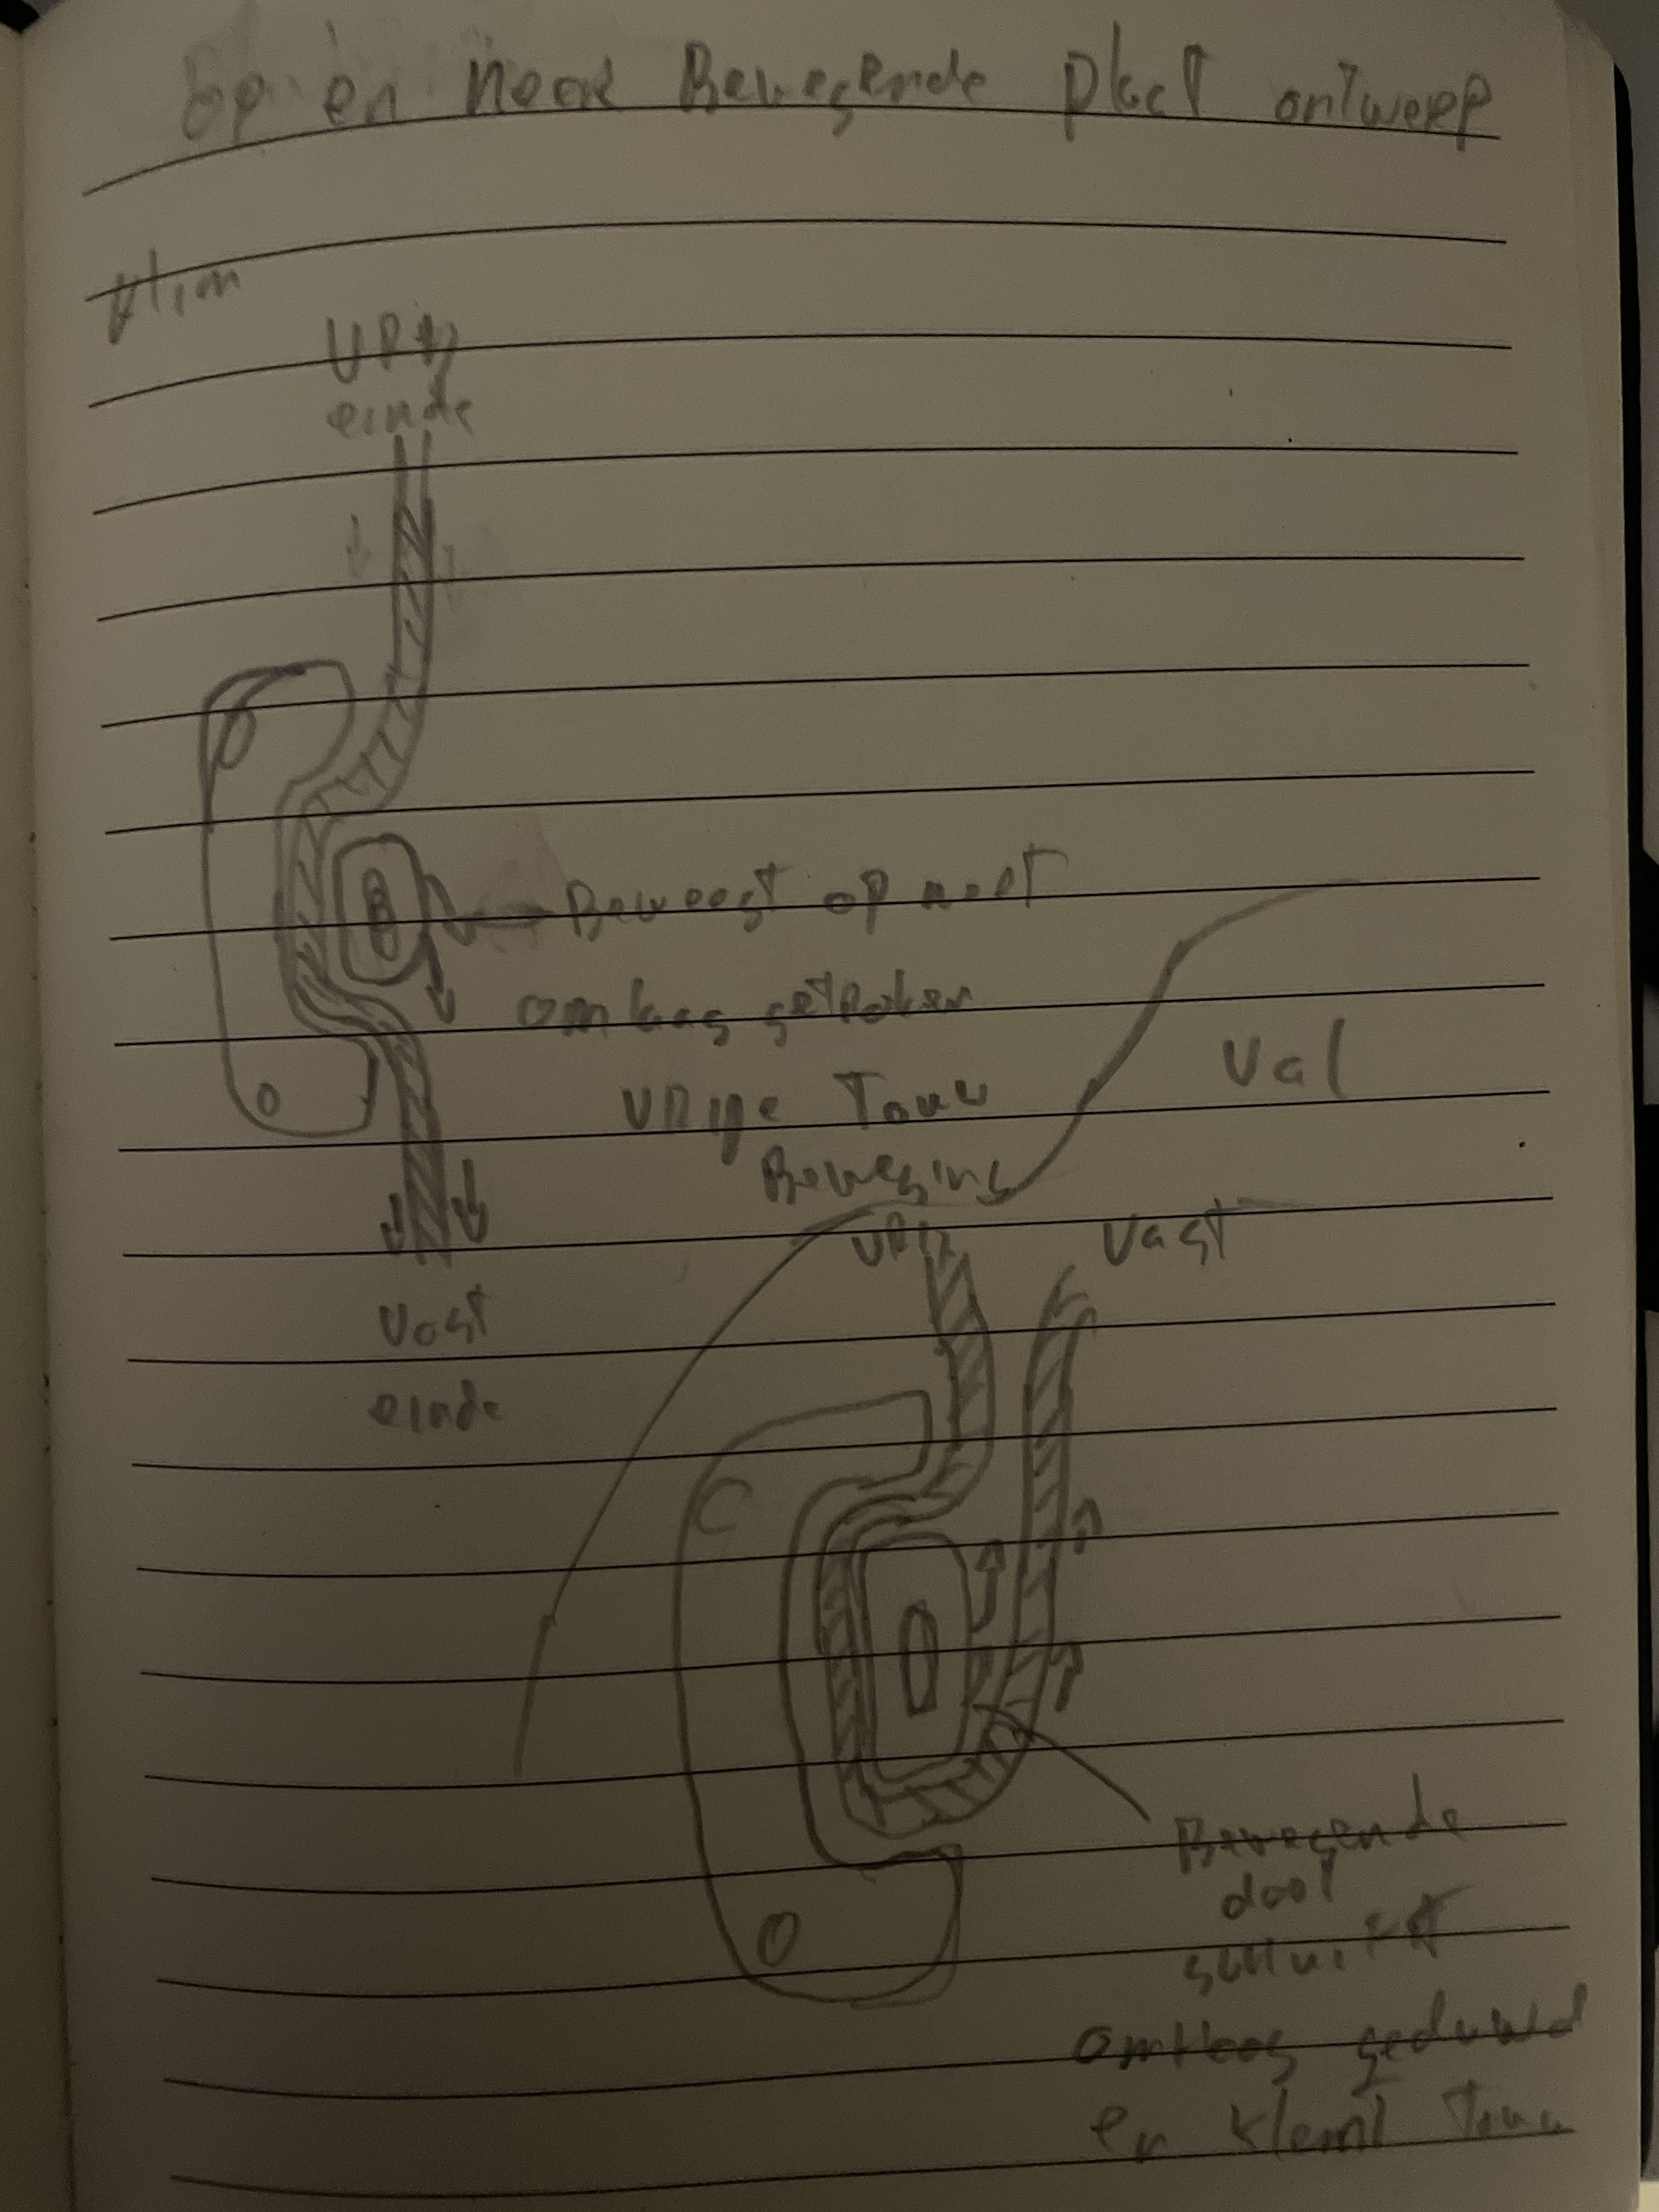 op en neer Bewegende plaat ontwerp
klim
VRIJ
einde
Beweegt op neer
omlaag getroken
vrije Touw
Beweging
Vast
einde
Val
VRIJ
Vast
Bewegende
deel
schuift
omhoog geduwd
en klemt Touw